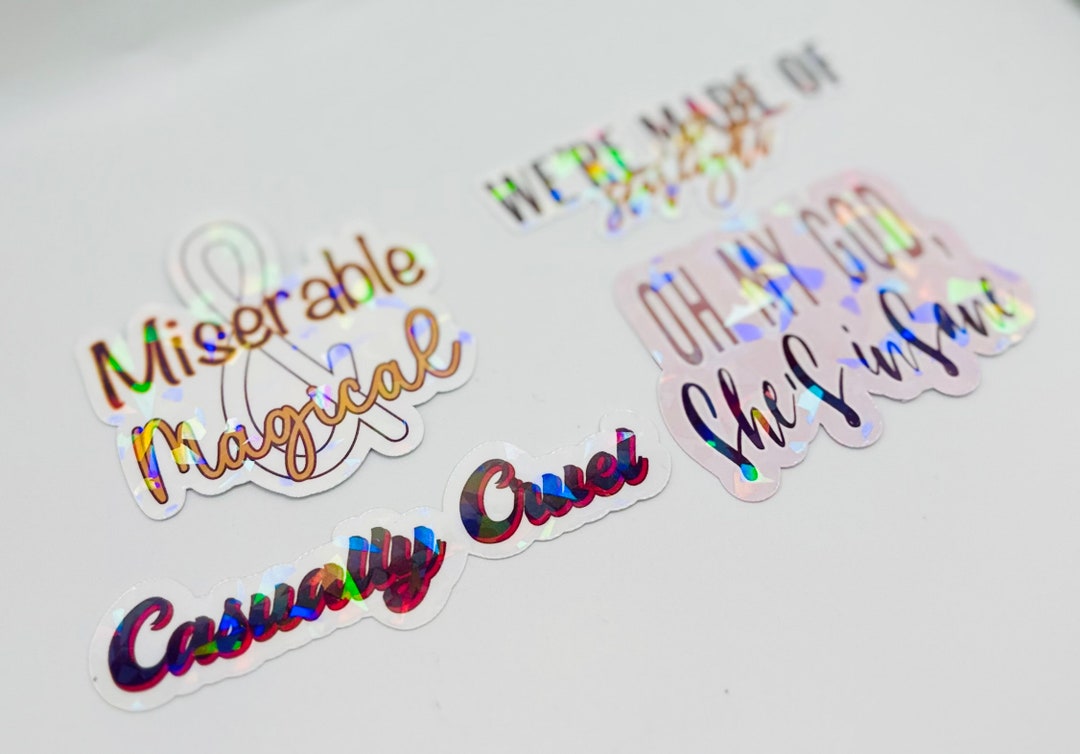 WE'RE MADE OF
Starlight
Miserable
&
Magical
OH MY GOD,
She'S inSane
Casually Cruel